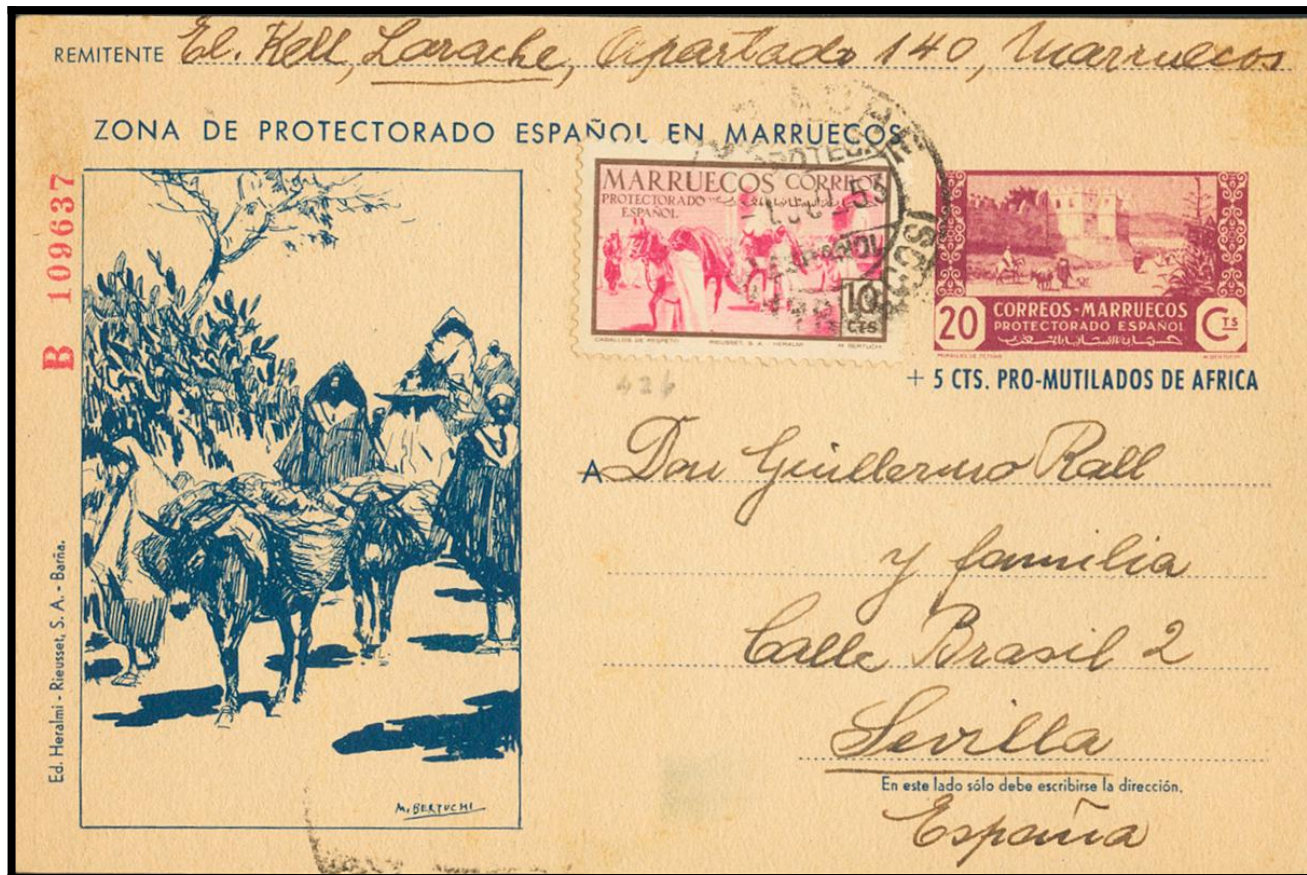 REMITENTE El. Kell, Larache, Apartado 140, Marruecos
ZONA DE PROTECTORADO ESPAÑOL EN MARRUECOS
B 109637
MARRUECOS CORREOS
PROTECTORADO
ESPAÑOL
10
CTS
CABALLOS DE RESPETO RIEUSSET, S.A. HERALMI M. BERTUCHI
55
20 CORREOS-MARRUECOS
PROTECTORADO ESPAÑOL CTS
+ 5 CTS. PRO-MUTILADOS DE AFRICA
426
A Don Guillermo Rall
y familia
Calle Brasil 2
Sevilla
En este lado sólo debe escribirse la dirección.
España
Ed. Heralmi - Rieusset, S. A. - Barña.
M. BERTUCHI